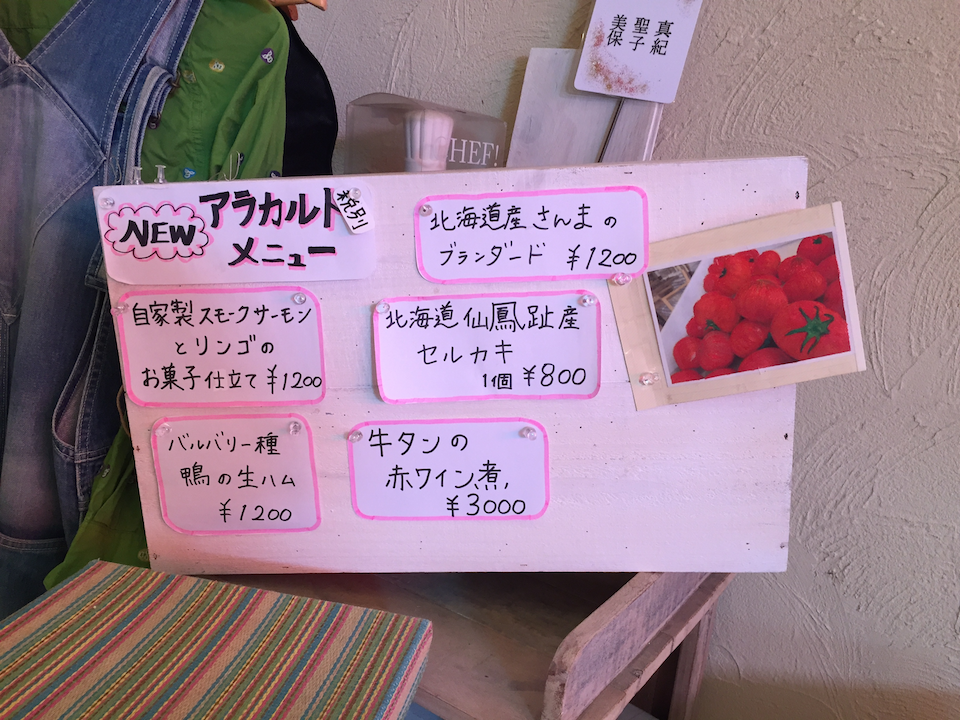 真紀
聖子
美保
HEF!
NEW
アラカルト
税別
メニュー
北海道産さんまの
ブランダード ¥1200
自家製スモークサーモン
とリンゴの
お菓子仕立て ¥1200
北海道仙鳳趾産
セルカキ
1個 ¥800
バルバリー種
鴨の生ハム
¥1200
牛タンの
赤ワイン煮
¥3000